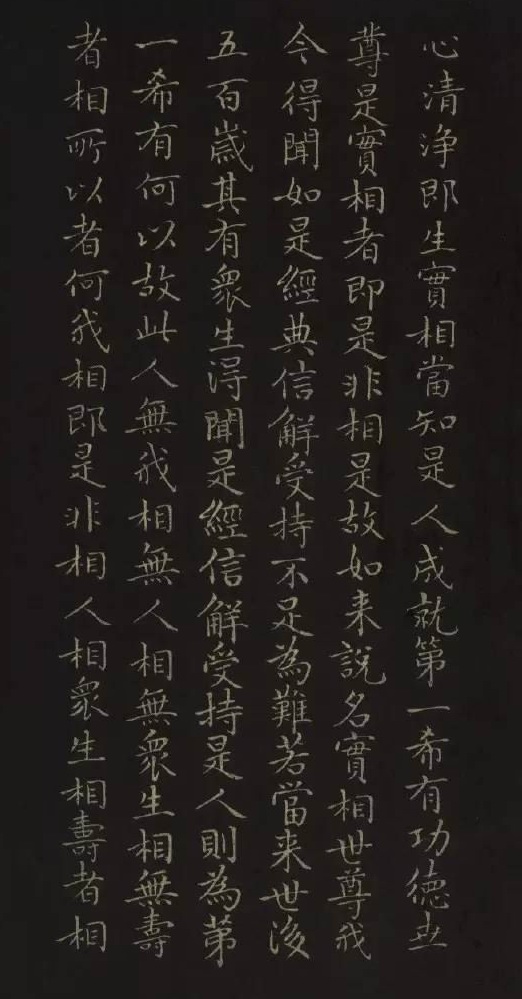 心清浄即生實相當知是人成就第一希有功德世
尊是實相者即是非相是故如来說名實相世尊我
今得聞如是經典信解受持不足為難若當来世後
五百歲其有衆生得聞是經信解受持是人則為第
一希有何以故此人無我相無人相無衆生相無壽
者相所以者何我相即是非相人相衆生相壽者相